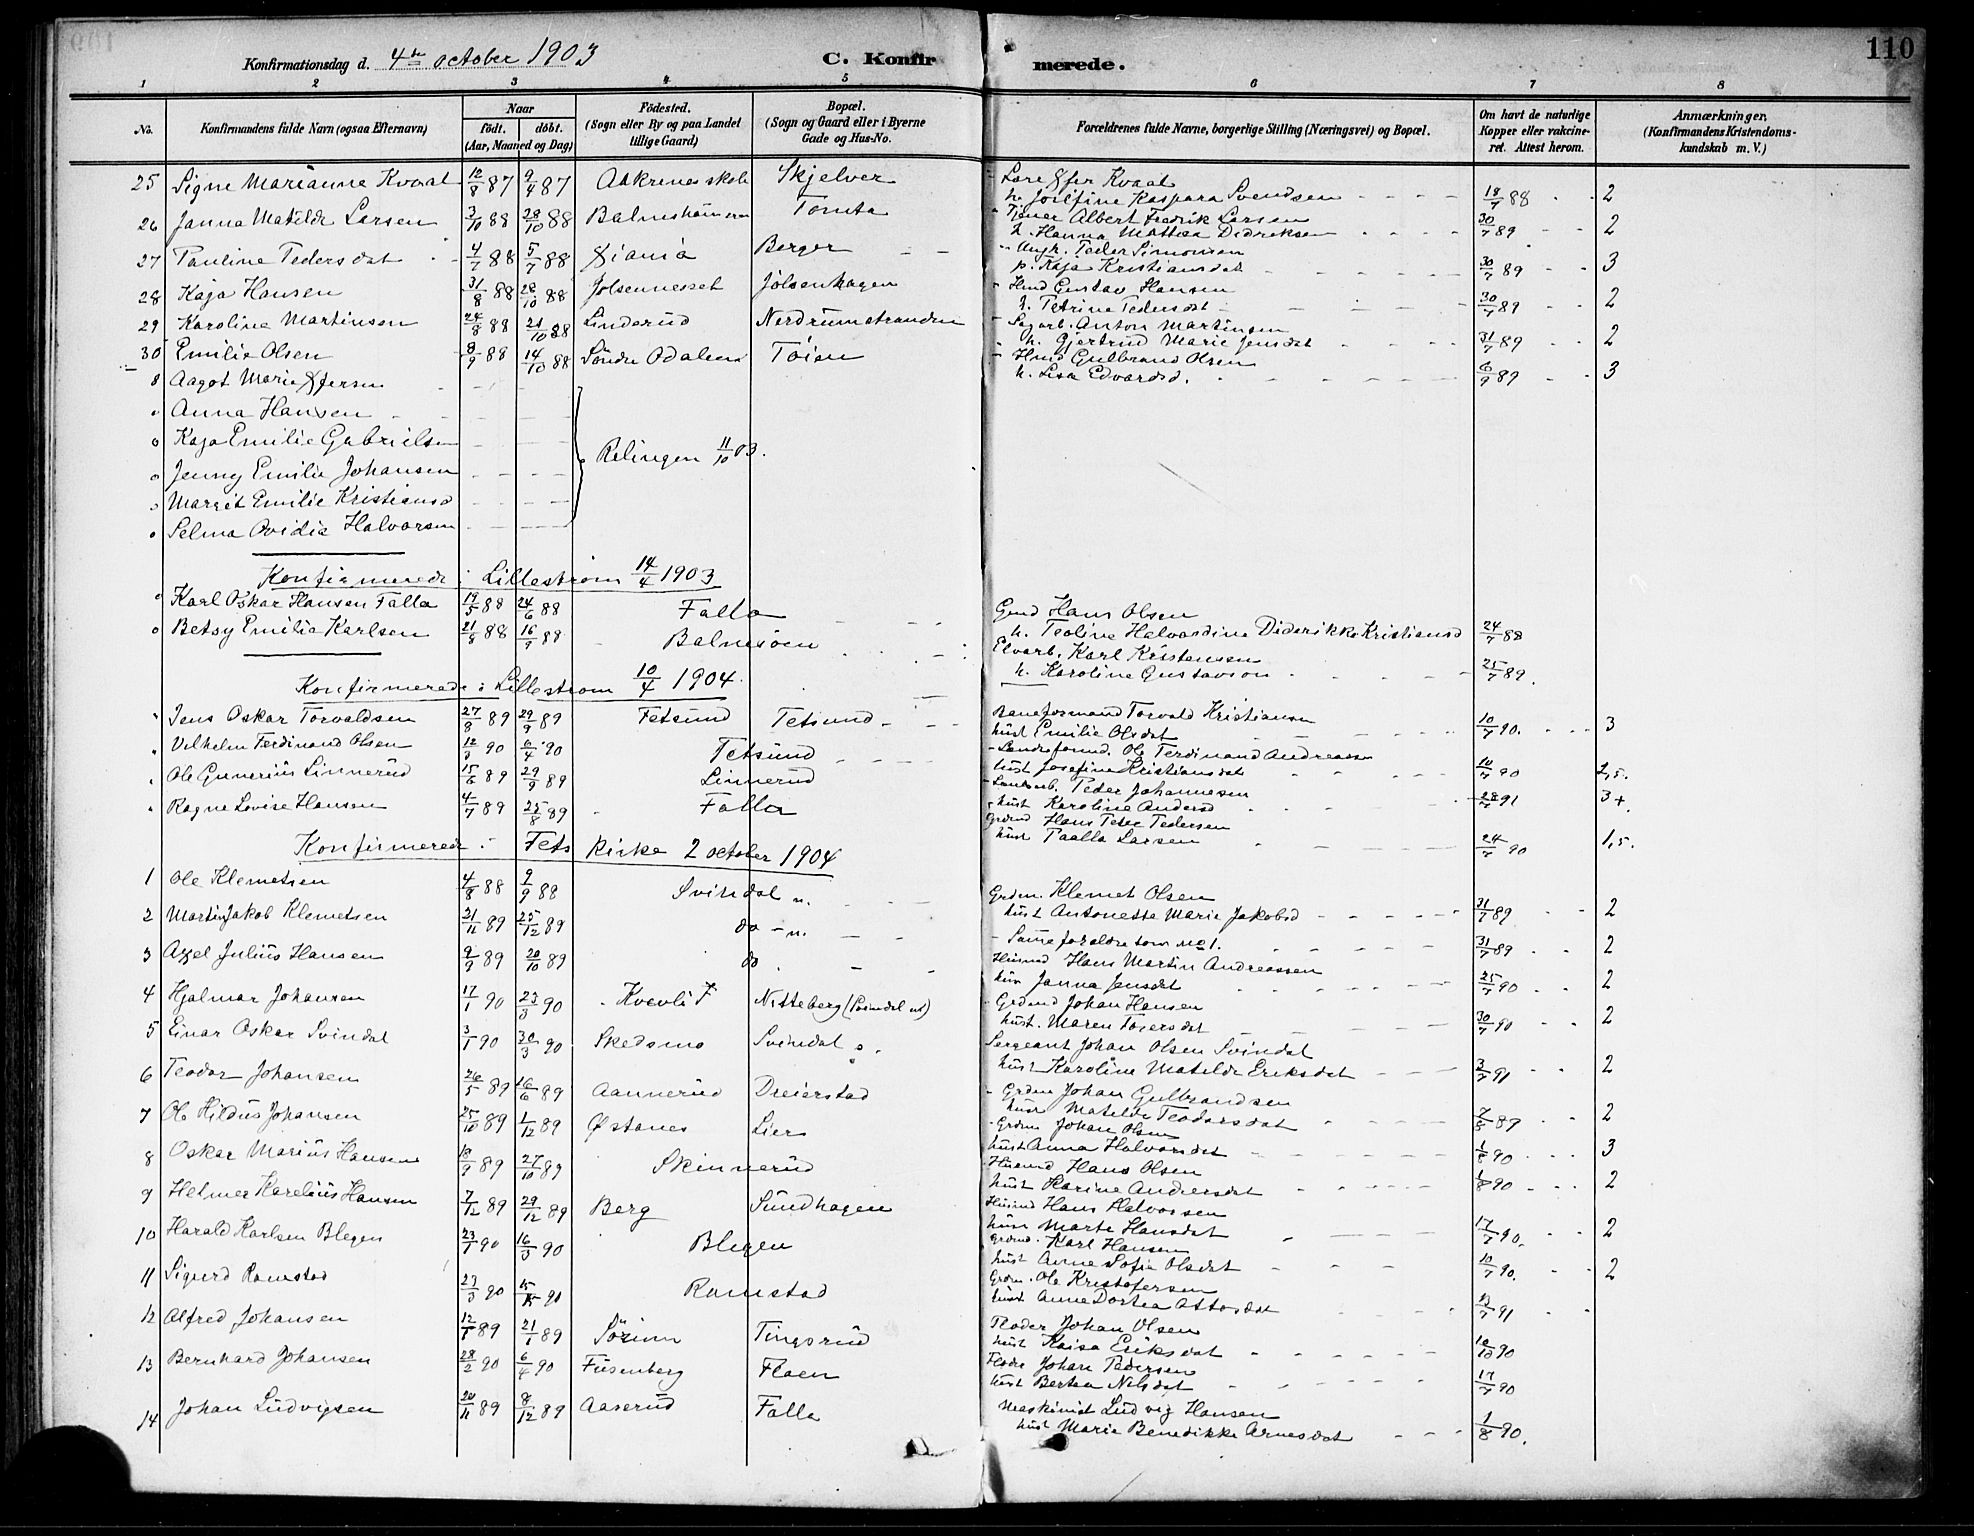 110
Konfirmationsdag d. 4de october 1903 C. Konfirmerede.
1 2 3 4 5 6 7 8
No. Konfirmandens fulde Navn (ogsaa Efternavn) Naar født. døbt. (Aar, Maaned og Dag) Fødested. (Sogn eller By og paa Landet tillige Gaard) Bopæl. (Sogn og Gaard eller i Byerne Gade og Hus-No. Forældrenes fulde Navne, borgerlige Stilling (Næringsvei) og Bopæl. Om havt de naturlige Kopper eller vakcineret. Attest herom. Anmærkninger. (Konfirmandens Kristendomskundskab m. V.)
25 Signe Marianne Kvaal 12/8 87 9/4 87 Aakrenes skole Skjelver 18/7 88 2
h. Josefine Kaspara Svendsen
26 Janna Matilde Larsen 3/10 88 28/10 88 Tomta Albert Fredrik Larsen 30/7 89 2
h. Hanna Mathea Didriksen
27 Pauline Pedersdat 4/7 88 5/7 88 Xiania Berger Ungk. Peder Simonsen
p. Kaja Kristiansdat 30/7 89 3
28 Kaja Hansen 31/8 88 28/10 88 Jølsenneset Jølsenhagen Hmd Gustav Hansen
h. Petrine Pedersdat 30/7 89 2
29 Karoline Martinsen 24/8 88 21/10 88 Linderud Nerdrumstranden Sagarb. Anton Martinsen
h. Gjertrud Marie Jensdat 31/7 89 2
30 Emilie Olsen 8/9 88 14/10 88 Søndre Odalen Tøien Hmd Gulbrand Olsen
h. Lisa Edvardsd. 6/9 89 3
Aagot Marie
Anna Hansen
Kaja Emilie Gabrielsen
Relingen 11/10 03.
Jenny Emilie Johansen
Margit Emilie Kristiansd
Selma Ovidia Halvorsen
Konfirmerede i Lillestrøm 14/4 1903
Karl Oskar Hansen Falla 19/5 88 24/6 88 Falla Gmd Hans Olsen
h. Teoline Halvardine Diderikke Kristiansd 24/7 88
Betsy Emilie Karlsen 21/8 88 16/9 88 Balnesøen Elvarb. Karl Kristensen
h. Karoline Gustavson 25/7 89.
Konfirmerede i Lillestrøm 10/4 1904.
Jens Oskar Torvaldsen 27/8 89 29/9 89 Fetsund Fetsund Baneformand Torvald Kristiansen
hust Emilie Olsdat 10/7 90. 3
Vilhelm Ferdinand Olsen 12/3 90 6/4 90 Fetsund Ole Ferdinand Andreassen
hust Josefine Kristiansdat 10/7 90 2,5.
Ole Gunerius Linnerud 15/6 89 29/9 89 Linnerud Peder Johannesen
hust Karoline Andersd 28/7 91 3+.
Ragne Lovise Hansen 4/7 89 25/8 89 Falla Grdmd Hans Peter Pedersen
hust Paalla Larsen 24/7 90 1,5.
Konfirmerede i Fets Kirke 2 october 1904
1 Ole Klemetsen 4/8 88 9/9 88 Svindal n. Grdm. Klemet Olsen
hust Antonette Marie Jakobsd 31/7 89 2
2 Martin Jakob Klemetsen 21/11 89 25/12 89 do n. Same forældre som no 1. 31/7 89 2
3 Axel Julius Hansen 9/9 89 20/10 89 do Husmd Hans Martin Andreassen
hus Janna Jensdat 25/7 90 2
4 Hjalmar Johansen 17/1 90 23/3 90 Nitteberg (Svindal n) Grdmd Johan Hansen
hust. Maren Toersdat 30/7 90 2
5 Einar Oskar Svindal 3/1 90 30/3 90 Skedsmo Svindal s. Sergeant Johan Olsen Svindal
hust Karoline Matilde Eriksdat 3/7 91 2
6 Teodor Johansen 26/5 89 16/6 89 Aannerud Dreierstad Grdm Johan Gulbrandsen
hust Matilde Teodorsdat 7/5 89 2
7 Ole Hildus Johansen 25/10 89 1/12 89 Østanes Lier Grdm Johan Olsen
hust Anna Halvorsdat 1/8 90 3
8 Oskar Marius Hansen 18/9 89 27/10 89 Skinnerud Husmd Hans Olsen
hust Karine Andersdat 1/8 90 2
9 Helmer Karelius Hansen 7/12 89 29/12 89 Berg Sundhagen Husmd Hans Halvorsen
hust Marte Hansdat 17/7 90. 2
10 Harald Karlsen Blegen 23/1 90 16/3 90 Blegen Grdmd. Karl Hansen
hust Anne Sofie Olsdat 10/7 90. 2
11 Sigurd Ramstad 23/3 90 90 Ramstad Grdm. Ole Kristofersen
hust Anne Dortea Attosdat 91
12 Alfred Johansen 12/1 89 21/1 89 Sørum Tingsrud Johan Olsen
hust Kaisa Eriksdat 10/10 90
13 Bernhard Johansen 28/2 90 6/4 90 Fusenberg Floen Johan Pedersen
hust Bertea Nilsdat 17/7 90
14 Johan Ludvigsen 20/11 89 8/12 89 Aaserud Falla Maskinist Ludvig Hansen
hust Marie Benedikke Arnesdat 1/8 90.